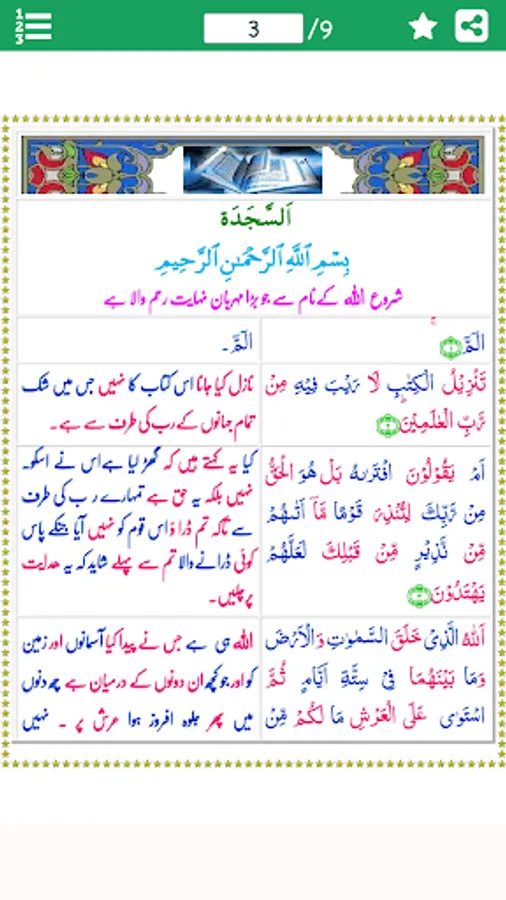 1
2
3
3 /9
اَلسَّجَدَة
بِسْمِ ٱللَّهِ ٱلرَّحْمَٰنِ ٱلرَّحِيمِ
شروع اللہ کے نام سے جو بڑا مہربان نہایت رحم والا ہے
الٓمّٓ ۚ ﴿۱﴾
الٓمّٓ۔
تَنْزِیْلُ الْکِتٰبِ لَا رَیْبَ فِیْهِ مِنْ
رَّبِّ الْعٰلَمِیْنَ ﴿۲﴾
نازل کیا جانا اس کتاب کا نہیں جس میں شک
تمام جہانوں کے رب کی طرف سے ہے۔
اَمْ یَقُوْلُوْنَ افْتَرٰىهُ بَلْ هُوَ الْحَقُّ
مِنْ رَّبِّکَ لِتُنْذِرَ قَوْمًا مَّاۤ اَتٰىهُمْ
مِّنْ نَّذِیْرٍ مِّنْ قَبْلِکَ لَعَلَّهُمْ
یَهْتَدُوْنَ ﴿۳﴾
کیا یہ کہتے ہیں کہ گھڑ لیا ہے اس نے اسکو۔
نہیں بلکہ یہ حق ہے تمہارے رب کی طرف
سے تاکہ تم ڈراؤ اس قوم کو نہیں آیا جنکے پاس
کوئی ڈرانے والا تم سے پہلے شاید کہ یہ ہدایت
پر چلیں۔
اَللّٰهُ الَّذِیْ خَلَقَ السَّمٰوٰتِ وَ الْاَرْضَ
وَمَا بَیْنَهُمَا فِیْ سِتَّةِ اَیَّامٍ ثُمَّ
اسْتَوٰی عَلَی الْعَرْشِ مَا لَکُمْ مِّنْ
اللہ ہی ہے جس نے پیدا کیا آسمانوں اور زمین
کو اور جو کچھ ان دونوں کے درمیان ہے چھ دنوں
میں پھر جلوہ افروز ہوا عرش پر ۔ نہیں